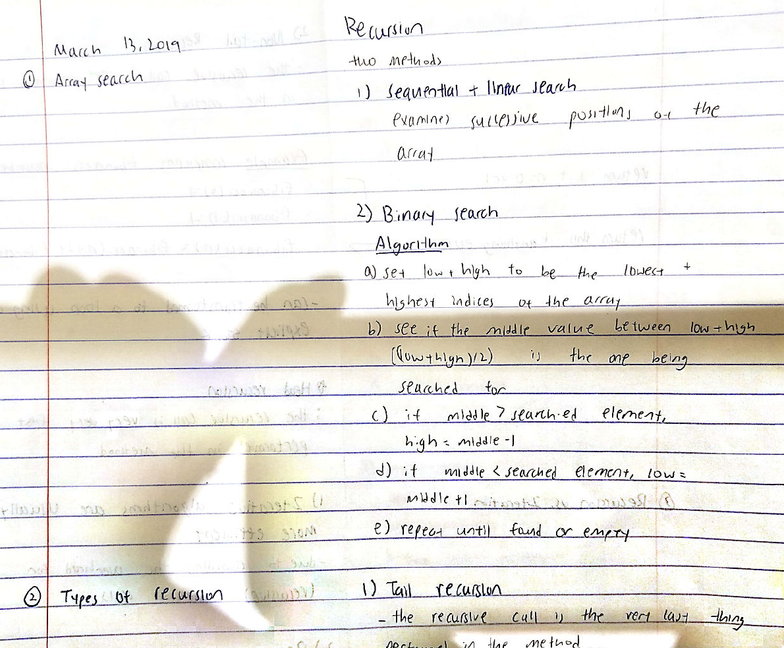 Recursion
March 13, 2019
① Array search
two methods
1) sequential + linear search
examines successive positions of the
array
2) Binary search
Algorithm
a) set low + high to be the lowest +
highest indices of the array
b) see if the middle value between low + high
((low + high)/2) is the one being
searched for
c) if middle > searched element,
high = middle - 1
d) if middle < searched element, low =
middle + 1
e) repeat until found or empty
② Types of recursion
1) Tail recursion
- the recursive call is the very last thing
in the method